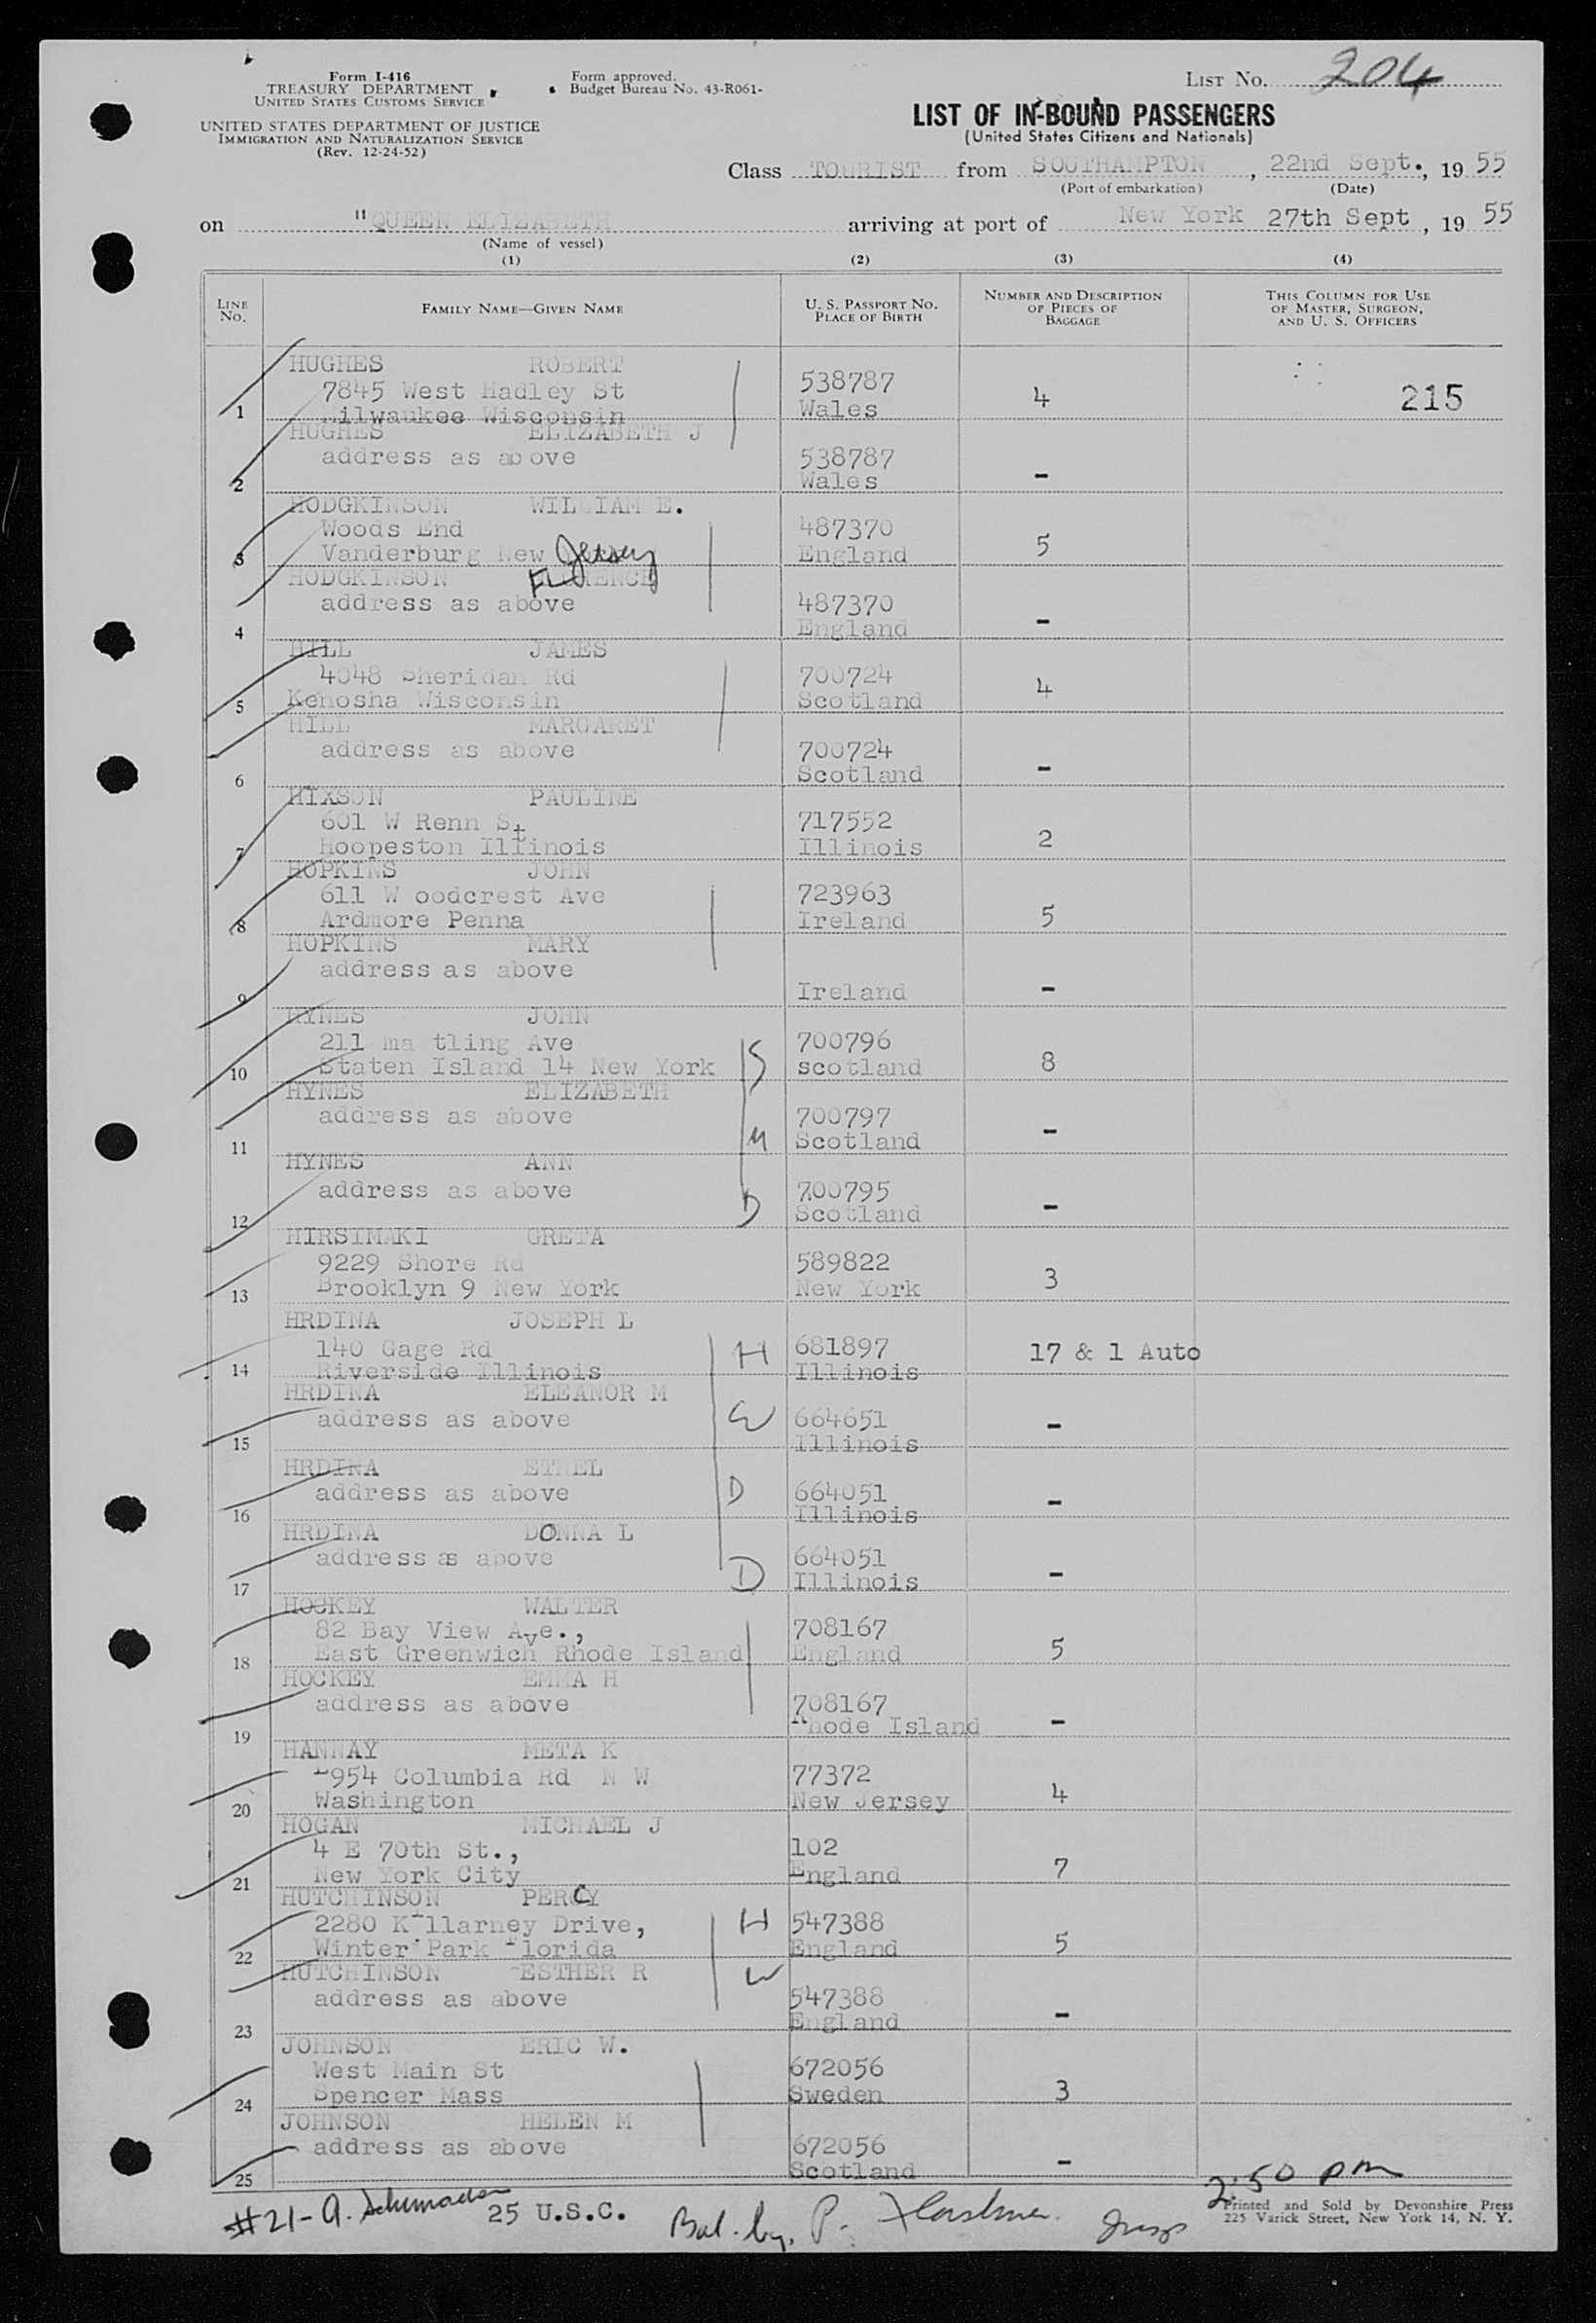 Form I-416
TREASURY DEPARTMENT
UNITED STATES CUSTOMS SERVICE
UNITED STATES DEPARTMENT OF JUSTICE
IMMIGRATION AND NATURALIZATION SERVICE
(Rev. 12-24-52)
Form approved.
Budget Bureau No. 43-R061-
LIST No. 204
LIST OF IN-BOUND PASSENGERS
(United States Citizens and Nationals)
Class TOURIST from SOUTHAMPTON, 22nd Sept., 19 55
(Port of embarkation) (Date)
on "QUEEN ELIZABETH arriving at port of New York 27th Sept, 19 55
(Name of vessel)
(1) (2) (3) (4)
LINE No. FAMILY NAME—GIVEN NAME U. S. PASSPORT NO. PLACE OF BIRTH NUMBER AND DESCRIPTION OF PIECES OF BAGGAGE THIS COLUMN FOR USE OF MASTER, SURGEON, AND U. S. OFFICERS
HUGHES ROBERT
7845 West Hadley St 538787 4 215
1 Milwaukee Wisconsin Wales
HUGHES ELIZABETH J
address as above 538787
2 Wales -
HODGKINSON WILLIAM E.
Woods End 487370 5
3 Vanderburg New Jersey England
HODGKINSON FLORENCE
address as above 487370
4 England -
HILL JAMES
4048 Sheridan Rd 700724 4
5 Kenosha Wisconsin Scotland
HILL MARGARET
address as above 700724
6 Scotland -
HIXSON PAULINE
601 W Renn St 717552
7 Hoopeston Illinois Illinois 2
HOPKINS JOHN
611 W oodcrest Ave 723963
8 Ardmore Penna Ireland 5
HOPKINS MARY
address as above
9 Ireland -
HYNES JOHN
211 ma tling Ave 700796
10 Staten Island 14 New York S scotland 8
HYNES ELIZABETH
address as above 700797
11 M Scotland -
HYNES ANN
address as above 700795
12 D Scotland -
HIRSIMAKI GRETA
9229 Shore Rd 589822
13 Brooklyn 9 New York New York 3
HRDINA JOSEPH L
140 Gage Rd H 681897 17 & 1 Auto
14 Riverside Illinois Illinois
HRDINA ELEANOR M
address as above W 664651
15 Illinois -
HRDINA ETHEL
address as above D 664051
16 Illinois -
HRDINA DONNA L
address as above 664051
17 D Illinois -
HOCKEY WALTER
82 Bay View Ave., 708167
18 East Greenwich Rhode Island England 5
HOCKEY EMMA H
address as above 708167
19 Rhode Island -
HANNAY META K
1954 Columbia Rd N W 77372
20 Washington New Jersey 4
HOGAN MICHAEL J
4 E 70th St., 102
21 New York City England 7
HUTCHINSON PERCY
2280 Killarney Drive, H 547388
22 Winter Park Florida England 5
HUTCHINSON ESTHER R W
address as above 547388
23 England -
JOHNSON ERIC W.
West Main St 672056
24 Spencer Mass Sweden 3
JOHNSON HELEN M
address as above 672056
25 Scotland -
2:50 pm
#21- A. Schumacher 25 U.S.C. Bal. by. P.
Printed and Sold by Devonshire Press
225 Varick Street, New York 14, N. Y.